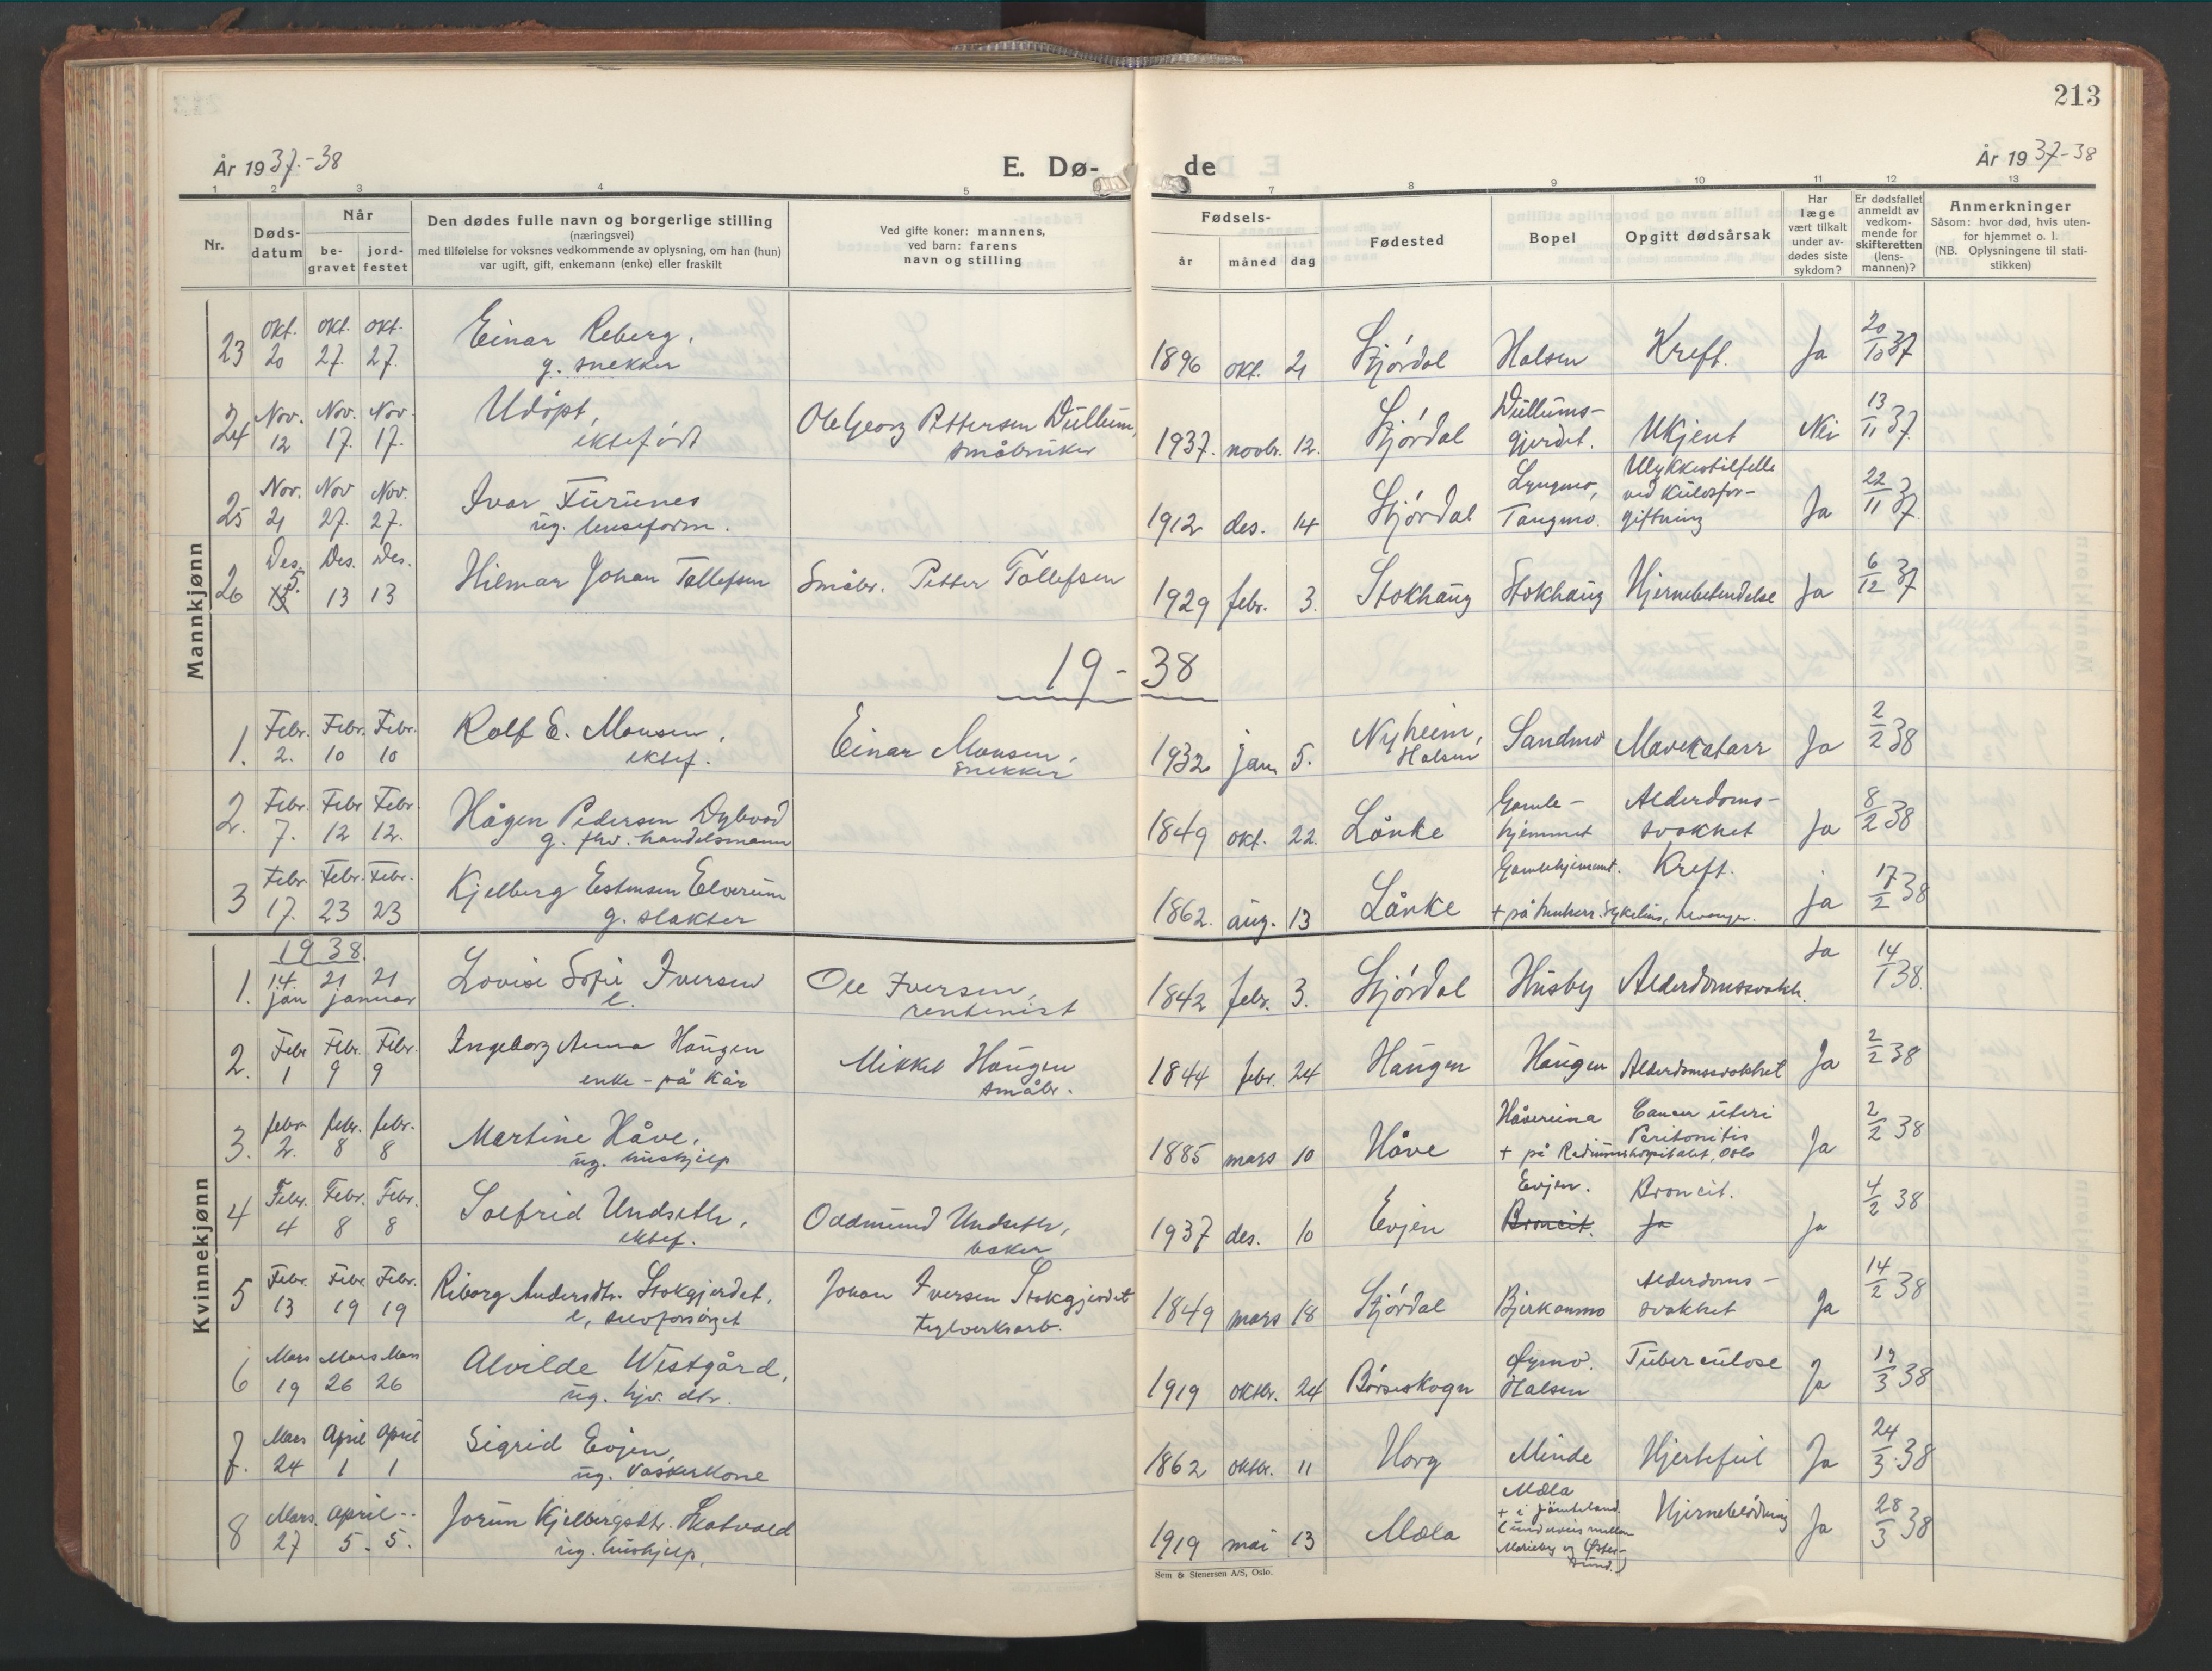 213
År 1937.-38
E. Dø-de
År 1937-38
1 2 3 4 5 7 8 9 10 11 12 13
Nr.
Døds-
datum
Når
be-
gravet
jord-
festet
Den dødes fulle navn og borgerlige stilling
(næringsvei)
med tilføielse for voksnes vedkommende av oplysning, om han (hun)
var ugift, gift, enkemann (enke) eller fraskilt
Ved gifte koner: mannens,
ved barn: farens
navn og stilling
Fødsels-
år måned dag
Fødested
Bopel
Opgitt dødsårsak
Har
læge
vært tilkalt
under av-
dødes siste
sykdom?
Er dødsfallet
anmeldt av
vedkom-
mende for
skifteretten
(lens-
mannen)?
Anmerkninger
Såsom: hvor død, hvis uten-
for hjemmet o. l.
(NB. Oplysningene til stati-
stikken)
Mannkjønn
23 Okt. 20 Okt. 27. Okt. 27. Einar Reberg, g. snekker 1896 okt. 21 Stjórdal Halsen Kreft. Ja 20/10 37
24 Nov. 12 Nov. 17. Nov. 17. Udöpt, ektefödt Ole Georg Pettersen Dullum, småbruker 1937. novbr. 12. Stjórdal Dullums-gjerdet. Ukjent Nei 13/11 37.
25 Nov. 21 Nov 27. Nov. 27. Ivar Furunes ug. lenseform. 1912 des. 14 Stjórdal Lyngmo, Tangmo. Ulykkestilfelle ved kulosfor-giftning Ja 22/11 37.
26 Des. 5. Des. 13 Des. 13 Hilmar Johan Tollefsen Småbr. Petter Tollefsen 1929 febr. 3. Stokhaug Stokhaug Hjernebetendelse Ja 6/12 37
19-38
1. Febr. 2. Febr. 10 Febr. 10 Rolf E. Monsen, ektef. Einar Monsen, snekker 1932 jan 5. Nyheim, Halsen Sandmo Mavekatarr Ja 2/2 38
2. Febr. 7. Febr 12 Febr. 12. Hågen Pedersen Dybvad g. fhv. handelsmann 1849 okt. 22. Lånke Gamle-hjemmet Alderdoms-svakhet Ja 8/2 38
3 Febr. 17. Febr. 23 Febr. 23 Kjelberg Estensen Elverum g. slakter 1862. aug. 13 Lånke Gamlehjemmet. + på Innherr. Sykehus, Levanger. Kreft. ja 17/2 38
Kvinnekjønn
1938.
1. 14. jan 21 21 januar Lovise Sofie Iversen e. Ole Iversen, rentenist 1842 febr. 3. Stjórdal Husby Alderdomssvakh. Ja 14/1 38.
2. Febr 1 Febr. 9 Febr. 9 Ingeborg Anna Haugen enke - på kår Mikkel Haugen småbr. 1844 febr. 24 Haugen Haugen Alderdomssvakhet Ja 2/2 38
3. febr. 2. febr. 8 febr. 8 Martine Håve, ug. hushjelp 1885 mars 10 Håve Håvereina + på Radiumshospitalet, Oslo Cancer uteri Peritonitis Ja 2/2 38
4 Febr. 4 Febr. 8 Febr. 8 Solfrid Undseth, ektef. Oddmund Undseth, baker 1937 des. 10 Evjen Evjen. Broncit. Broncit. Ja Ja 4/2 38
5 Febr. 13 Febr. 19 Febr. 19 Riborg Andersdtr. Stokgjerdet, e, selvforsörget Johan Iversen Stokgjerdet teglverksarb. 1849 mars 18 Stjórdal Bjerkanmo Alderdoms-svakhet Ja 14/2 38
6 Mars 19 Mars 26 Mars 26 Alvilde Westgård, ug. hjv. dtr. 1919 oktbr. 24 Börseskogn Öymo. Halsen Tuberculose Ja 19/3 38
7. Mars 24 April 1 April 1 Sigrid Evjen, ug. vaskerkone 1862 oktbr. 11 Horg Minde Hjertefeil Ja 24/3 38
8 Mars. 27 April 5. 5. Jorun Kjelbergsdtr. Skatvold ug. hushjelp, 1919 mai 13 Mæla Mæla + i Jämteland (underveis mellem Marieby og Öster-sund.) Hjerneblödning Ja 28/3 38
Sem & Stenersen A/S, Oslo.